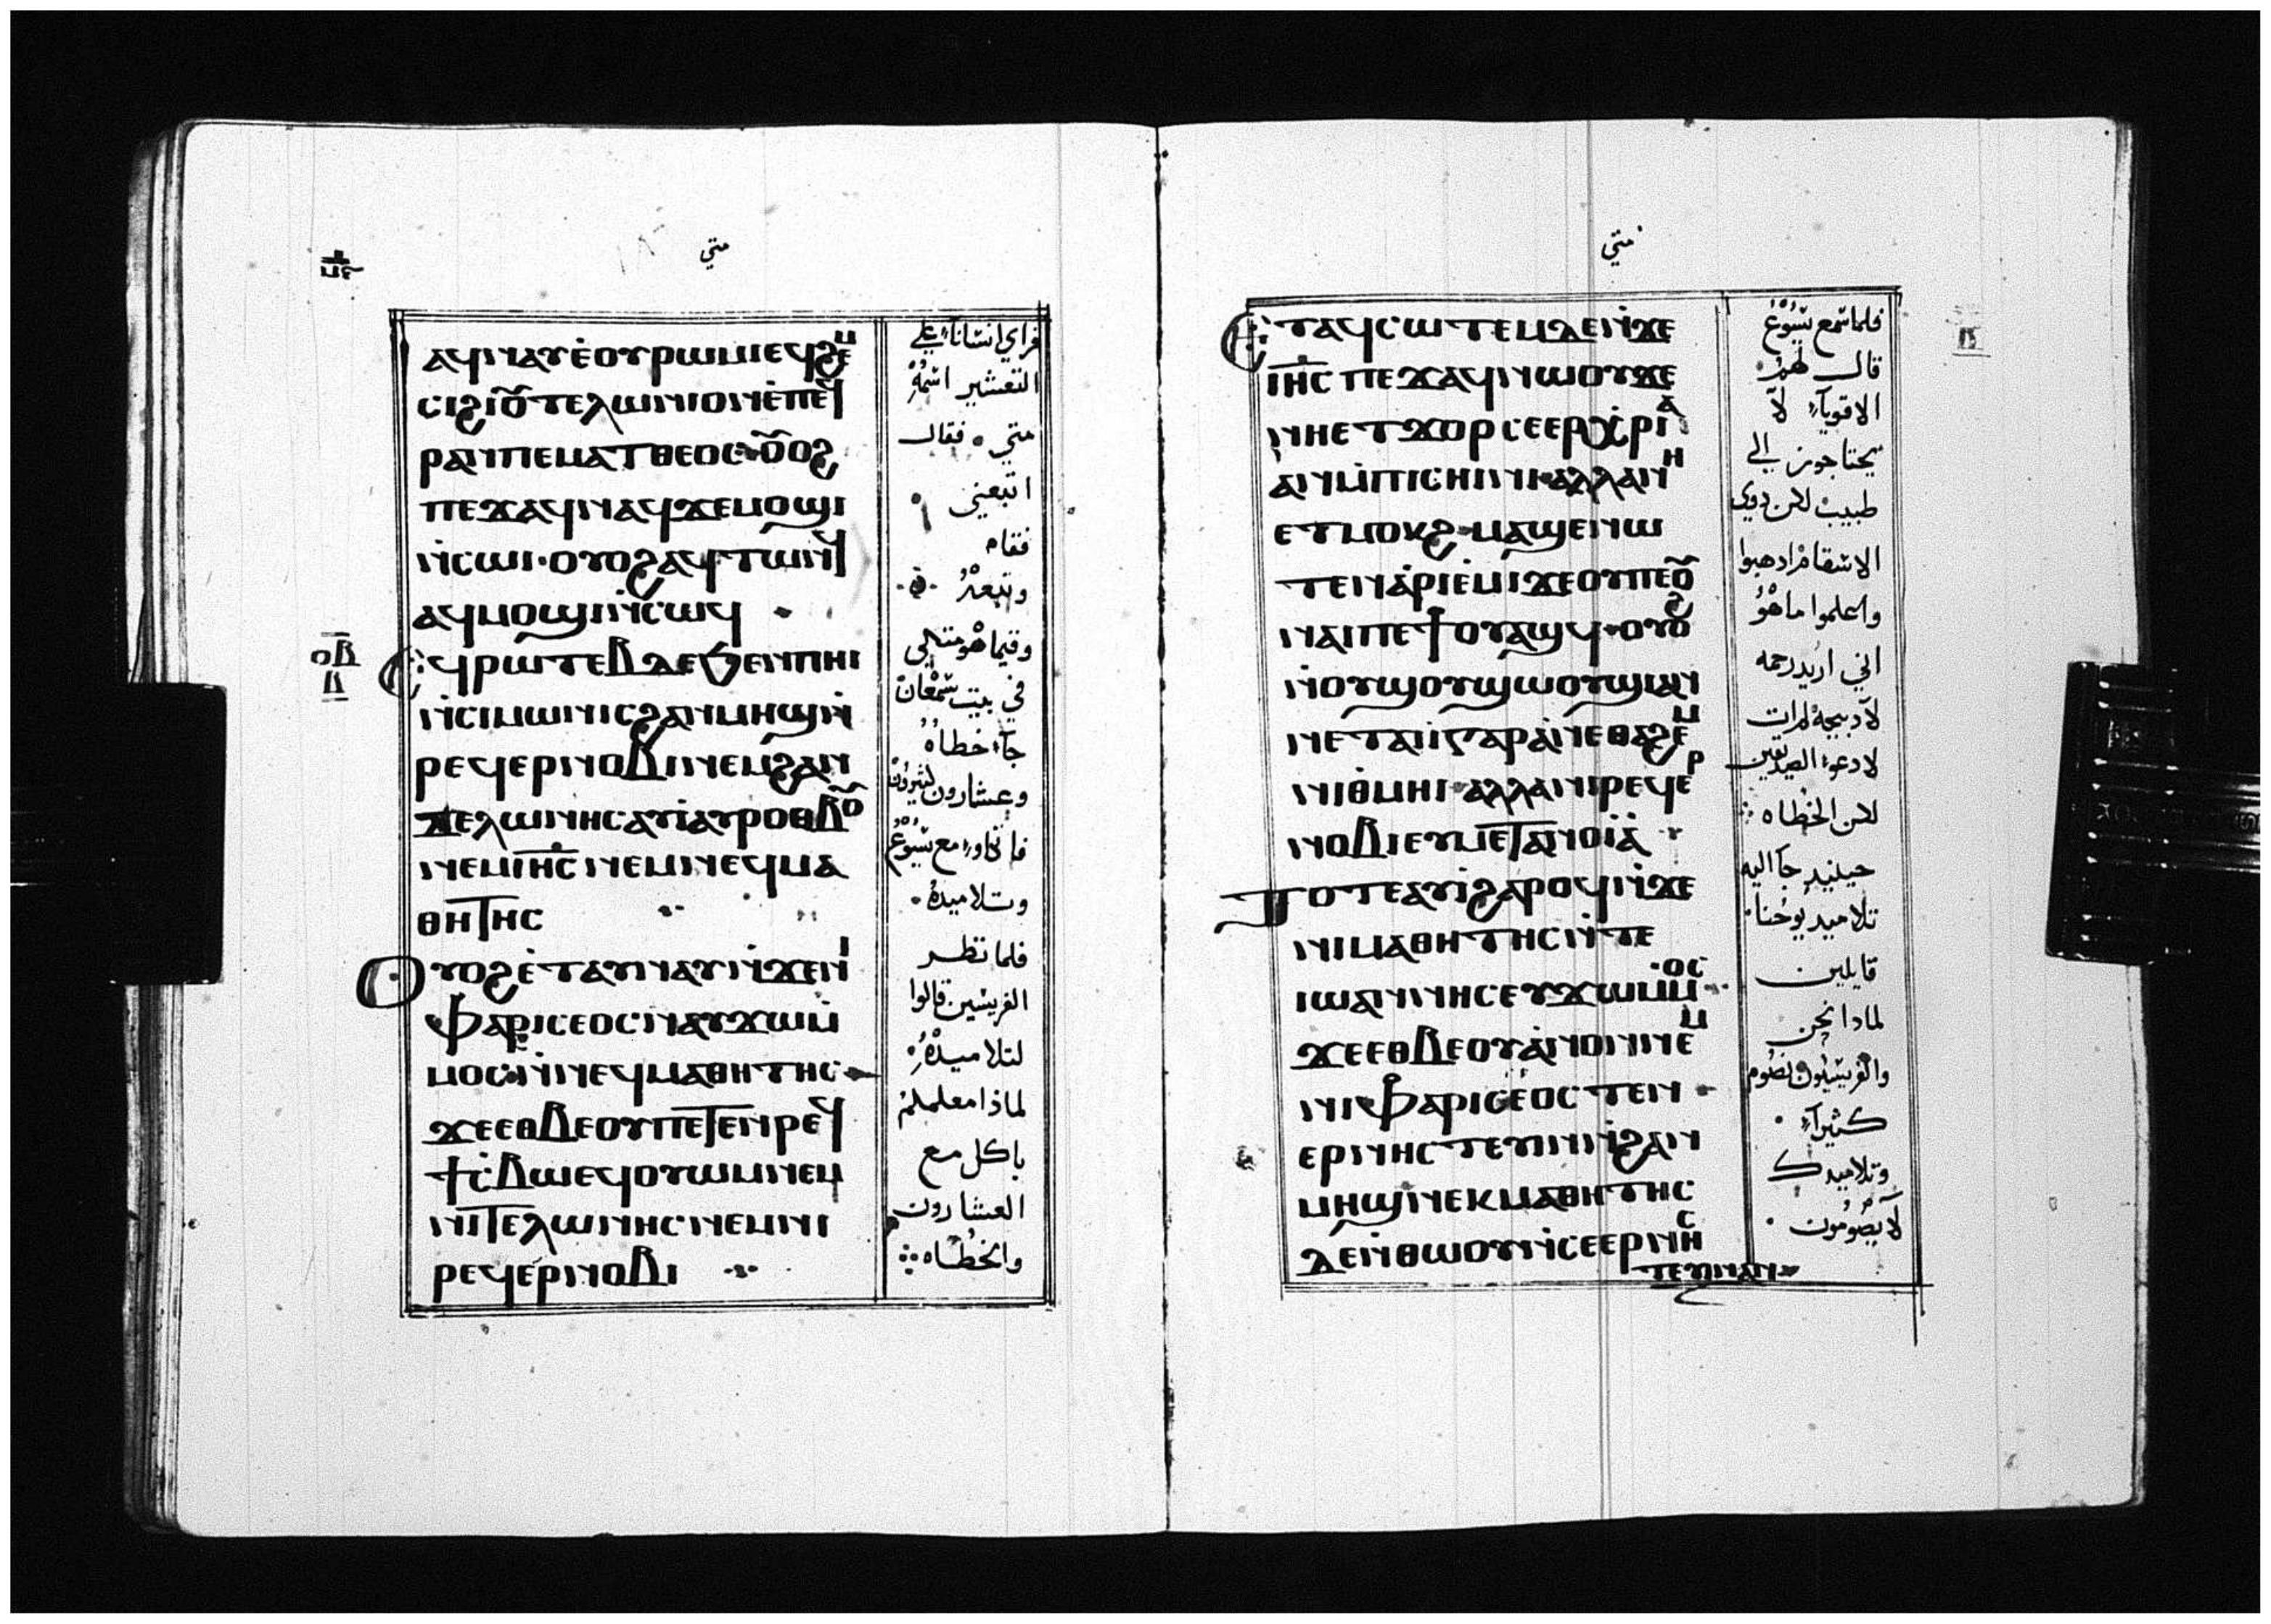 متي
ⲁϥⲛⲁⲩ ⲉ̀ⲟⲩⲣⲱⲙⲓ ⲉϥϩⲉⲙ
ⲥⲓ ϩⲓ ⲟⲩⲧⲉⲗⲱⲛⲓⲟⲛ ⲉ̀ⲡⲉϥ
ⲣⲁⲛ ⲡⲉ ⲙⲁⲧⲑⲉⲟⲥ ⲟⲩⲟϩ
ⲡⲉϫⲁϥ ⲛⲁϥ ϫⲉ ⲙⲟϣⲓ
ⲛ̀ⲥⲱⲓ · ⲟⲩⲟϩ ⲁϥⲧⲱⲛϥ
ⲁϥⲙⲟϣⲓ ⲛ̀ⲥⲱϥ
ⲉϥⲣⲱⲧⲉⲃ ⲇⲉ ϧⲉⲛ ⲡⲏⲓ
ⲛ̀ⲥⲓⲙⲱⲛ ⲓⲥ ϩⲁⲛⲙⲏϣ ⲛ̀
ⲣⲉϥⲉⲣⲛⲟⲃⲓ ⲛⲉⲙ ϩⲁⲛ
ⲧⲉⲗⲱⲛⲏⲥ ⲁⲩⲓ̀ ⲁⲩⲣⲟⲑⲃⲟⲩ
ⲛⲉⲙ ⲓⲏⲥ ⲛⲉⲙ ⲛⲉϥⲙⲁ
ⲑⲏⲧⲏⲥ
ⲟⲩⲟϩ ⲉ̀ⲧⲁⲩⲛⲁⲩ ⲛ̀ϫⲉ ⲛⲓ
ⲫⲁⲣⲓⲥⲉⲟⲥ ⲛⲁⲩϫⲱ ⲙ̀
ⲙⲟⲥ ⲛ̀ⲛⲉϥⲙⲁⲑⲏⲧⲏⲥ
ϫⲉ ⲉⲑⲃⲉⲟⲩ ⲡⲉⲧⲉⲛⲣⲉϥ
ϯⲥ̀ⲃⲱ ⲉϥⲟⲩⲱⲙ ⲛⲉⲙ
ⲛⲓⲧⲉⲗⲱⲛⲏⲥ ⲛⲉⲙ ⲛⲓ
ⲣⲉϥⲉⲣⲛⲟⲃⲓ
فراي انسانا علي
التعشير اسمه
متي . فقال
اتبعني
فقام
وتبعه
وفيما هو متكي
في بيت سمعان
جاء خطاه
وعشارون كثيرون
فاتكاوا مع يسوع
وتلاميده
فلما نظر
الفريسين قالوا
لتلاميده
لماذا معلمكم
ياكل مع
العشارون
والخطاه
متي
ⲉⲧⲁϥⲥⲱⲧⲉⲙ ⲇⲉ ⲛ̀ϫⲉ
ⲓⲏⲥ ⲡⲉϫⲁϥ ⲛⲱⲟⲩ ϫⲉ
ⲛⲏⲉⲧϫⲟⲣ ⲥⲉⲉⲣⲭ̀ⲣⲓⲁ
ⲁⲛ ⲙ̀ⲡⲓⲥⲏⲓⲛⲓ ⲁⲗⲗⲁ ⲛⲏ
ⲉⲧⲙⲟⲕϩ ⲙⲁϣⲉⲛⲱ
ⲧⲉⲛ ⲁ̀ⲣⲓⲉ̀ⲙⲓ ϫⲉ ⲟⲩ ⲡⲉ ⲟⲩ
ⲛⲁⲓ ⲡⲉϯⲟⲩⲁϣϥ · ⲟⲩⲟϩ
ⲛ̀ⲟⲩϣⲟⲩϣⲱⲟⲩϣⲓ ⲁⲛ
ⲛⲉⲧⲁⲓⲓ̀ ⲅⲁⲣ ⲁⲛ ⲉⲑⲁϩⲉⲙ
ⲛⲓⲑ̀ⲙⲏⲓ ⲁⲗⲗⲁ ⲛⲓⲣⲉϥⲉⲣ
ⲛⲟⲃⲓ ⲉⲩⲙⲉⲧⲁⲛⲟⲓⲁ̀
ⲧⲟⲧⲉ ⲁⲩⲓ̀ ϩⲁⲣⲟϥ ⲛ̀ϫⲉ
ⲛⲓⲙⲁⲑⲏⲧⲏⲥ ⲛ̀ⲧⲉ
ⲓⲱⲁⲛⲛⲏⲥ ⲉⲩϫⲱ ⲙⲙⲟⲥ
ϫⲉ ⲉⲑⲃⲉⲟⲩ ⲁ̀ⲛⲟⲛ ⲛⲉⲙ
ⲛⲓⲫⲁⲣⲓⲥⲉⲟⲥ ⲧⲉⲛ
ⲉⲣⲛⲏⲥⲧⲉⲩⲓⲛ ⲛ̀ϩⲁⲛ
ⲙⲏϣ ⲛⲉⲕⲙⲁⲑⲏⲧⲏⲥ
ⲇⲉ ⲛ̀ⲑⲱⲟⲩ ⲛ̀ⲥⲉⲉⲣⲛⲏⲥ
ⲧⲉⲩⲓⲛ ⲁⲛ
فلما سمع يسوع
قال لهم
الاقويآء لا
يحتاجون الي
طبيب لكن دوي
الاسقام ادهبوا
واعلموا ما هو
اني اريد رحمه
لا دبيحه لم ات
لادعوا الصديقين
لكن الخطاه
حينيد جا اليه
تلاميد يوحنا
قايلين
لمادا نحن
والفريسيون نصوم
كثيرآ
وتلاميدك
لا يصومون